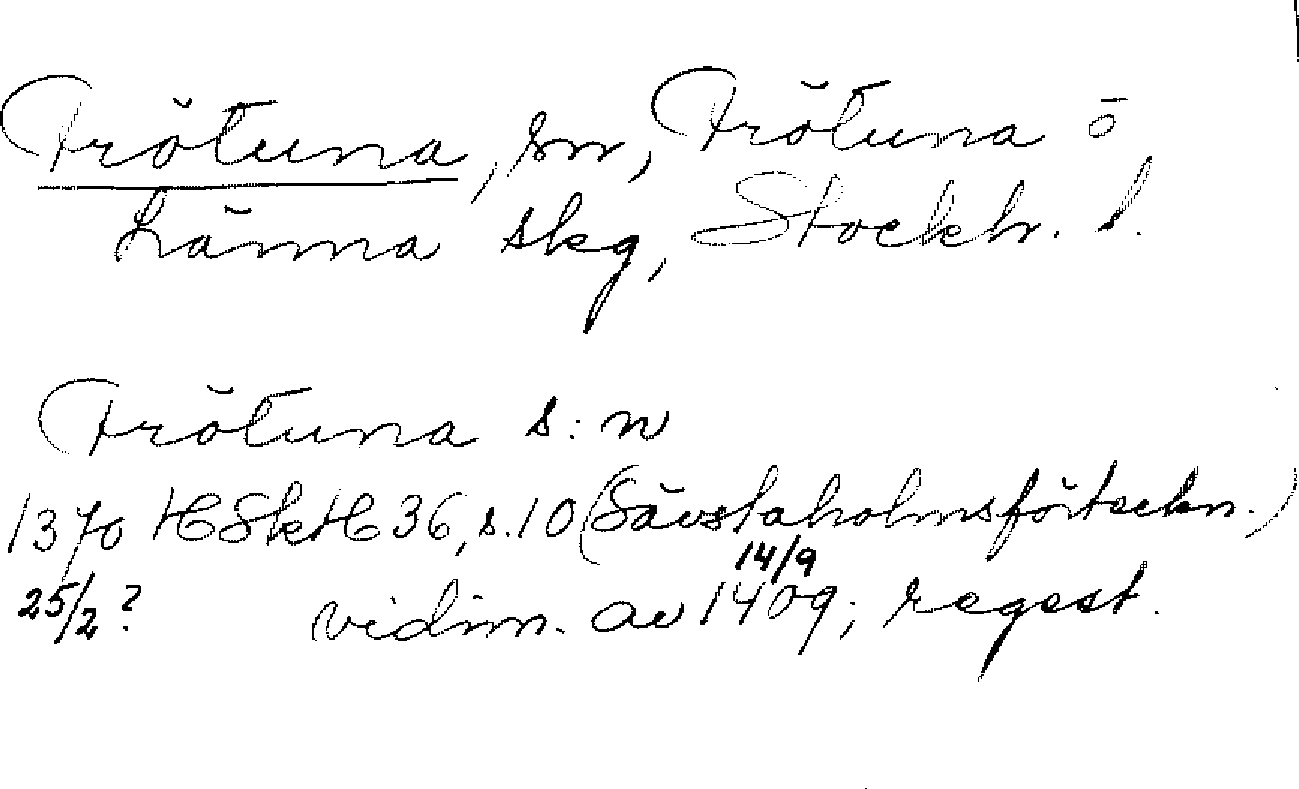 Frötuna, sn, Frötuna o
Länna skg, Stockh. l.
Frötuna s:n
1370 HSkH 36, s. 10 (Sävstaholmsförtekn.)
25/2? vidim. av 14/9 1409; regest.